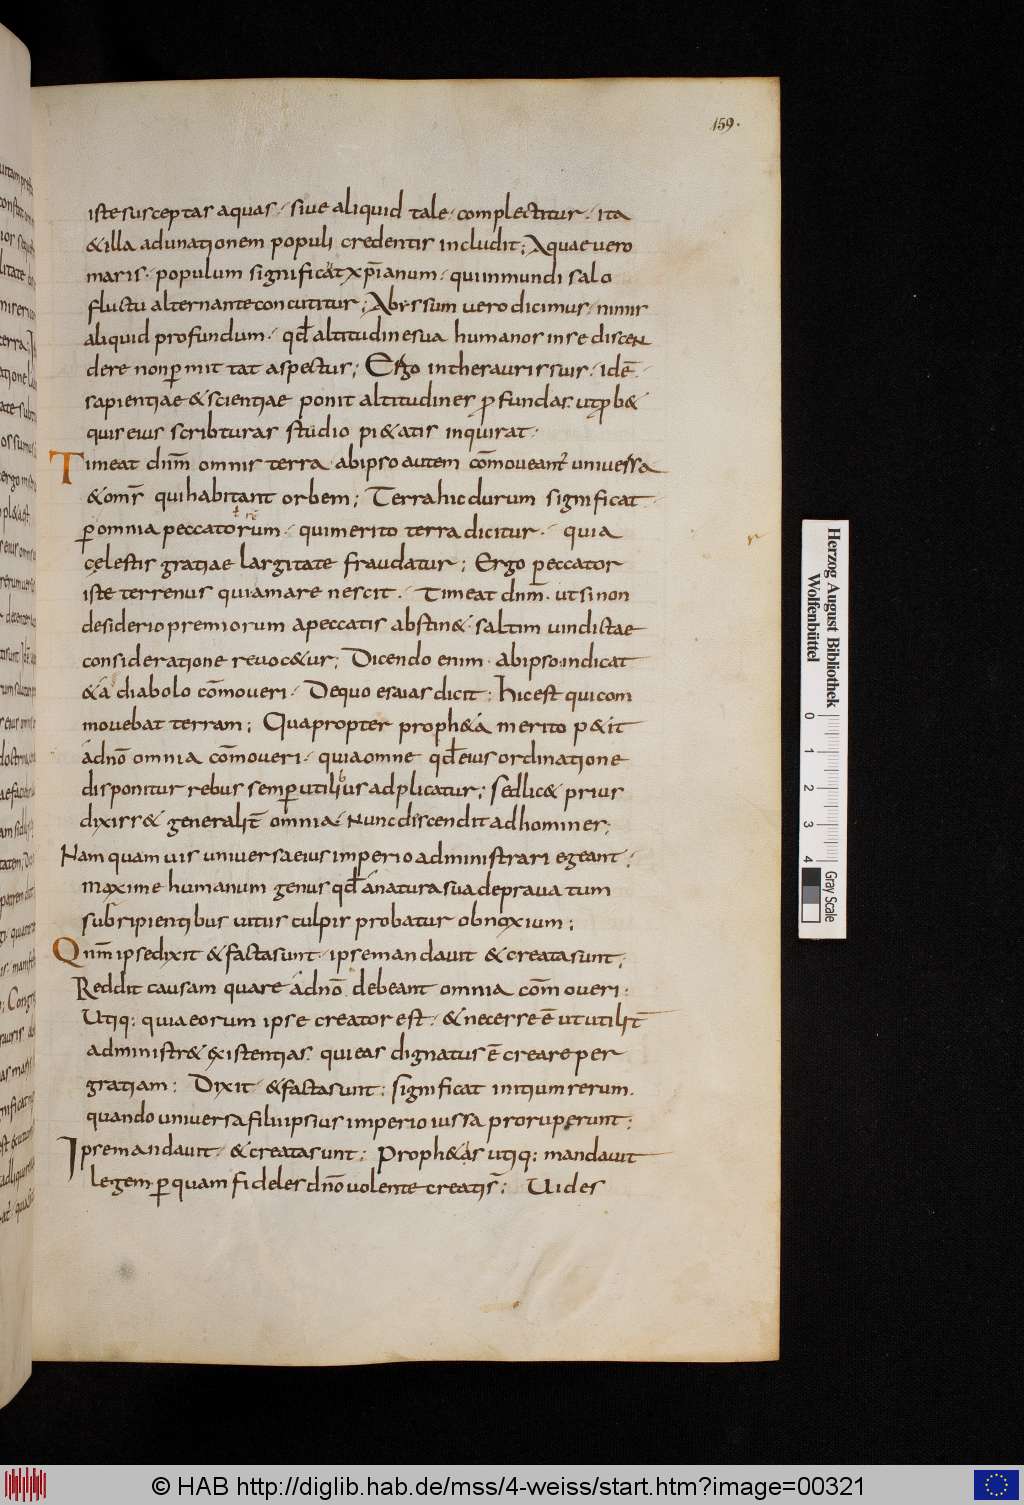 159.
iste susceptas aquas· siue aliquid tale· complectitur· ita
& illa adunationem populi credentis includit; Aquae uero
maris· populum significat xp̄ianum· qui in mundi salo
fluctu alternante concutitur; Abyssum uero dicimus· nimis
aliquid profundum· qđ altitudine sua humanos in se discen
dere non ꝑmittat aspectus; Ergo in thesauris suis· idē·
sapientiae & scientiae ponit altitudines ꝓfundas. ut ꝓb&
quis eius scribturas studio pi&atis inquirat·
Timeat dnm̄ omnis terra· ab ipso autem cōmoueant' uniuersa
& omēs qui habitant orbem; Terra hic durum significat·
ꝑ omnia peccatorum· qui merito terra dicitur· quia
cęlestis gratiae largitate fraudatur; Ergo peccator
iste terrenus qui amare nescit. Timeat dnm̄· ut si non
desiderio premiorum a peccatis abstin&· saltim uindictae
consideratione reuoc&ur; Dicendo enim· ab ipso· indicat
& á diabolo cōmoueri· De quo esaias dicit: hic est qui com
mouebat terram; Quapropter proph&a merito p&it
á dnō omnia cōmoueri· quia omne qđ eius ordinatione
disponitur rebus semꝑ utilibus adplicatur; sed lic& prius
dixiss& generalit̄ omnia· Nunc discendit ad homines;
Nam quamuis uniuersa eius imperio administrari egeant;
maxime humanum genus qđ á natura sua deprauatum
subripientibus uitiis culpis probatur obnoxium;
Qnm̄ ipse dixit & facta sunt· ipse mandauit & creata sunt;
Reddit causam quare á dnō debeant omnia cōmoueri·
Utiq: quia eorum ipse creator est· & necesse ē ut utilit̄
administr& existentias. qui eas dignatus ē creare per
gratiam: Dixit· & facta sunt: significat initium rerum.
quando uniuersa filii ipsius imperio iussa proruperunt;
Ipse mandauit· & creata sunt: Proph&as utiq: mandauit
legem ꝑ quam fideles dnō uolente creatis̄: Uides
Herzog August Bibliothek
Wolfenbüttel
0 1 2 3 4
Gray Scale
© HAB http://diglib.hab.de/mss/4-weiss/start.htm?image=00321